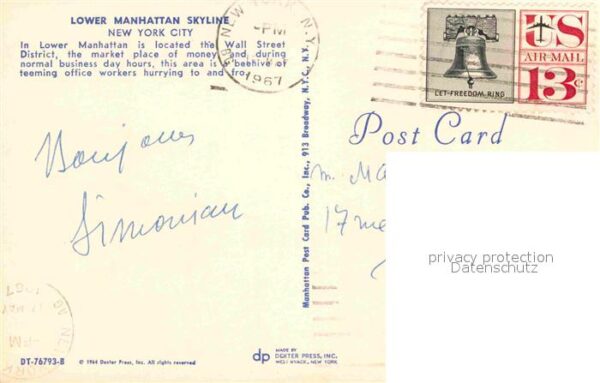 LOWER MANHATTAN SKYLINE
NEW YORK CITY
In Lower Manhattan is located the Wall Street
District, the market place of money and during
normal business day hours, this area is a beehive of
teeming office workers hurrying to and fro.
NEW YORK N.Y.
PM
1967
US
AIR MAIL
13c
LET FREEDOM RING
Post Card
Bonjour
Simonian
m. Ma
17
Manhattan Post Card Pub. Co., Inc., 913 Broadway, N.Y.C. N.Y.
privacy protection
Datenschutz
DT-76793-B
© 1964 Dexter Press, Inc. All rights reserved
dp
MADE BY
DEXTER PRESS, INC.
WEST NYACK, NEW YORK